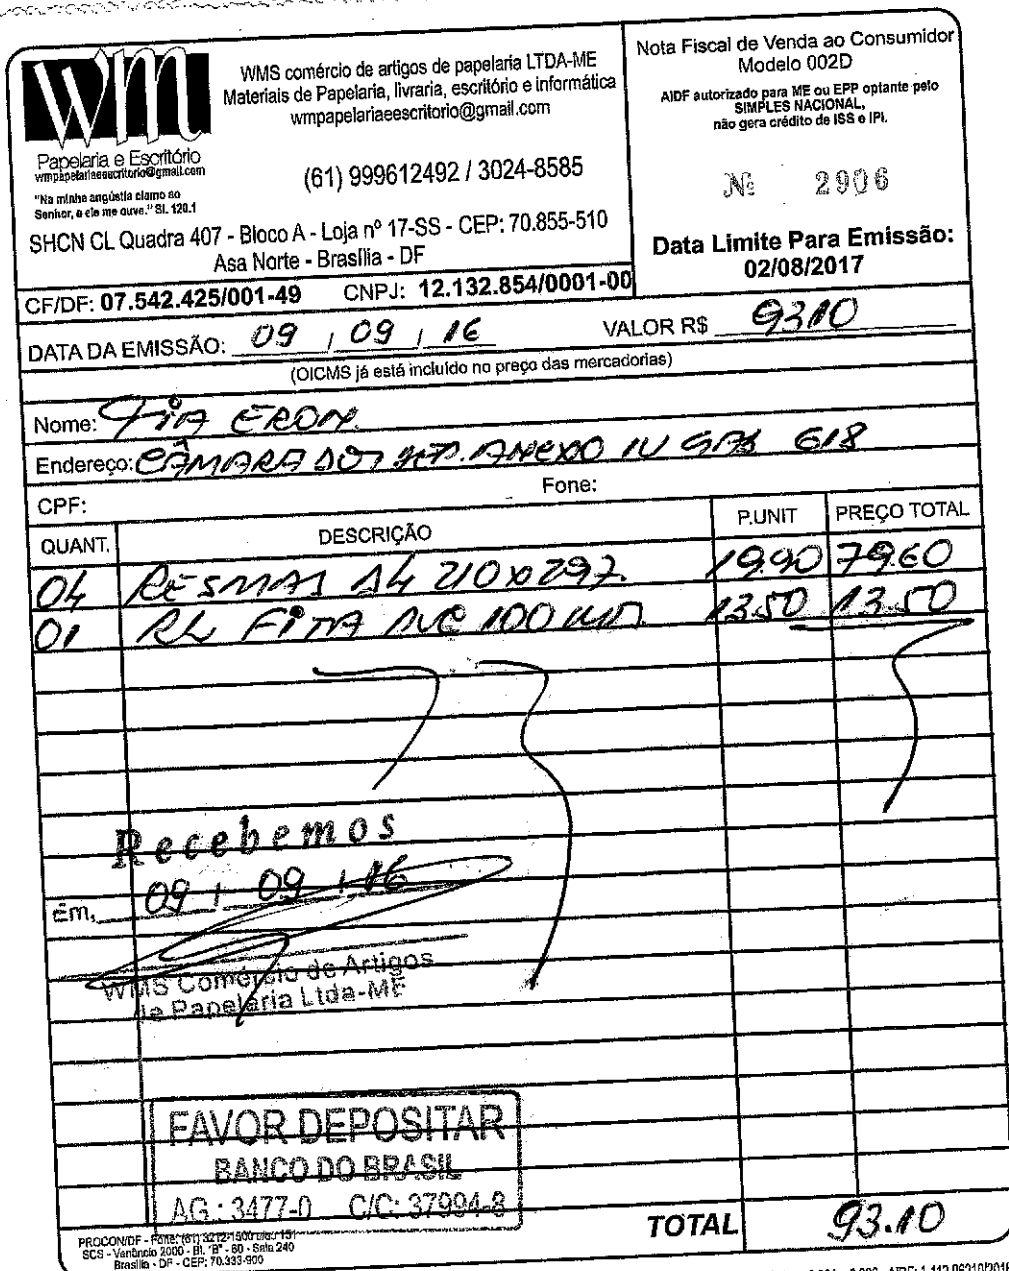 wm
Papelaria e Escritório
wmpapelariaeescritorio@gmail.com
"Na minha angústia clamo ao
Senhor, e ele me ouve." Sl. 120.1
WMS comércio de artigos de papelaria LTDA-ME
Materiais de Papelaria, livraria, escritório e informática
wmpapelariaeescritorio@gmail.com
(61) 999612492 / 3024-8585
SHCN CL Quadra 407 - Bloco A - Loja nº 17-SS - CEP: 70.855-510
Asa Norte - Brasília - DF
CF/DF: 07.542.425/001-49 CNPJ: 12.132.854/0001-00
Nota Fiscal de Venda ao Consumidor
Modelo 002D
AIDF autorizado para ME ou EPP optante pelo
SIMPLES NACIONAL,
não gera crédito de ISS e IPI.
Nº 2906
Data Limite Para Emissão:
02/08/2017
DATA DA EMISSÃO: 09 / 09 / 16 VALOR R$ 9310
(OICMS já está incluído no preço das mercadorias)
Nome: TIA ERON
Endereço: CÂMARA DOS DEP. ANEXO IV GAB 618
CPF: Fone:
QUANT. DESCRIÇÃO P.UNIT PREÇO TOTAL
04 RESMAS A4 210x297 19.90 79.60
01 RL FITA 13.50 13.50
Recebemos
Em, 09 / 09 / 16
WMS Comércio de Artigos
de Papelaria Ltda-ME
FAVOR DEPOSITAR
BANCO DO BRASIL
AG.: 3477-0 C/C: 37994-8
TOTAL 93.10
PROCON/DF - Fone: (61) 3212-1500 151
SCS - Venâncio 2000 - Bl. "B" - 60 - Sala 240
Brasília - DF - CEP: 70.333-900